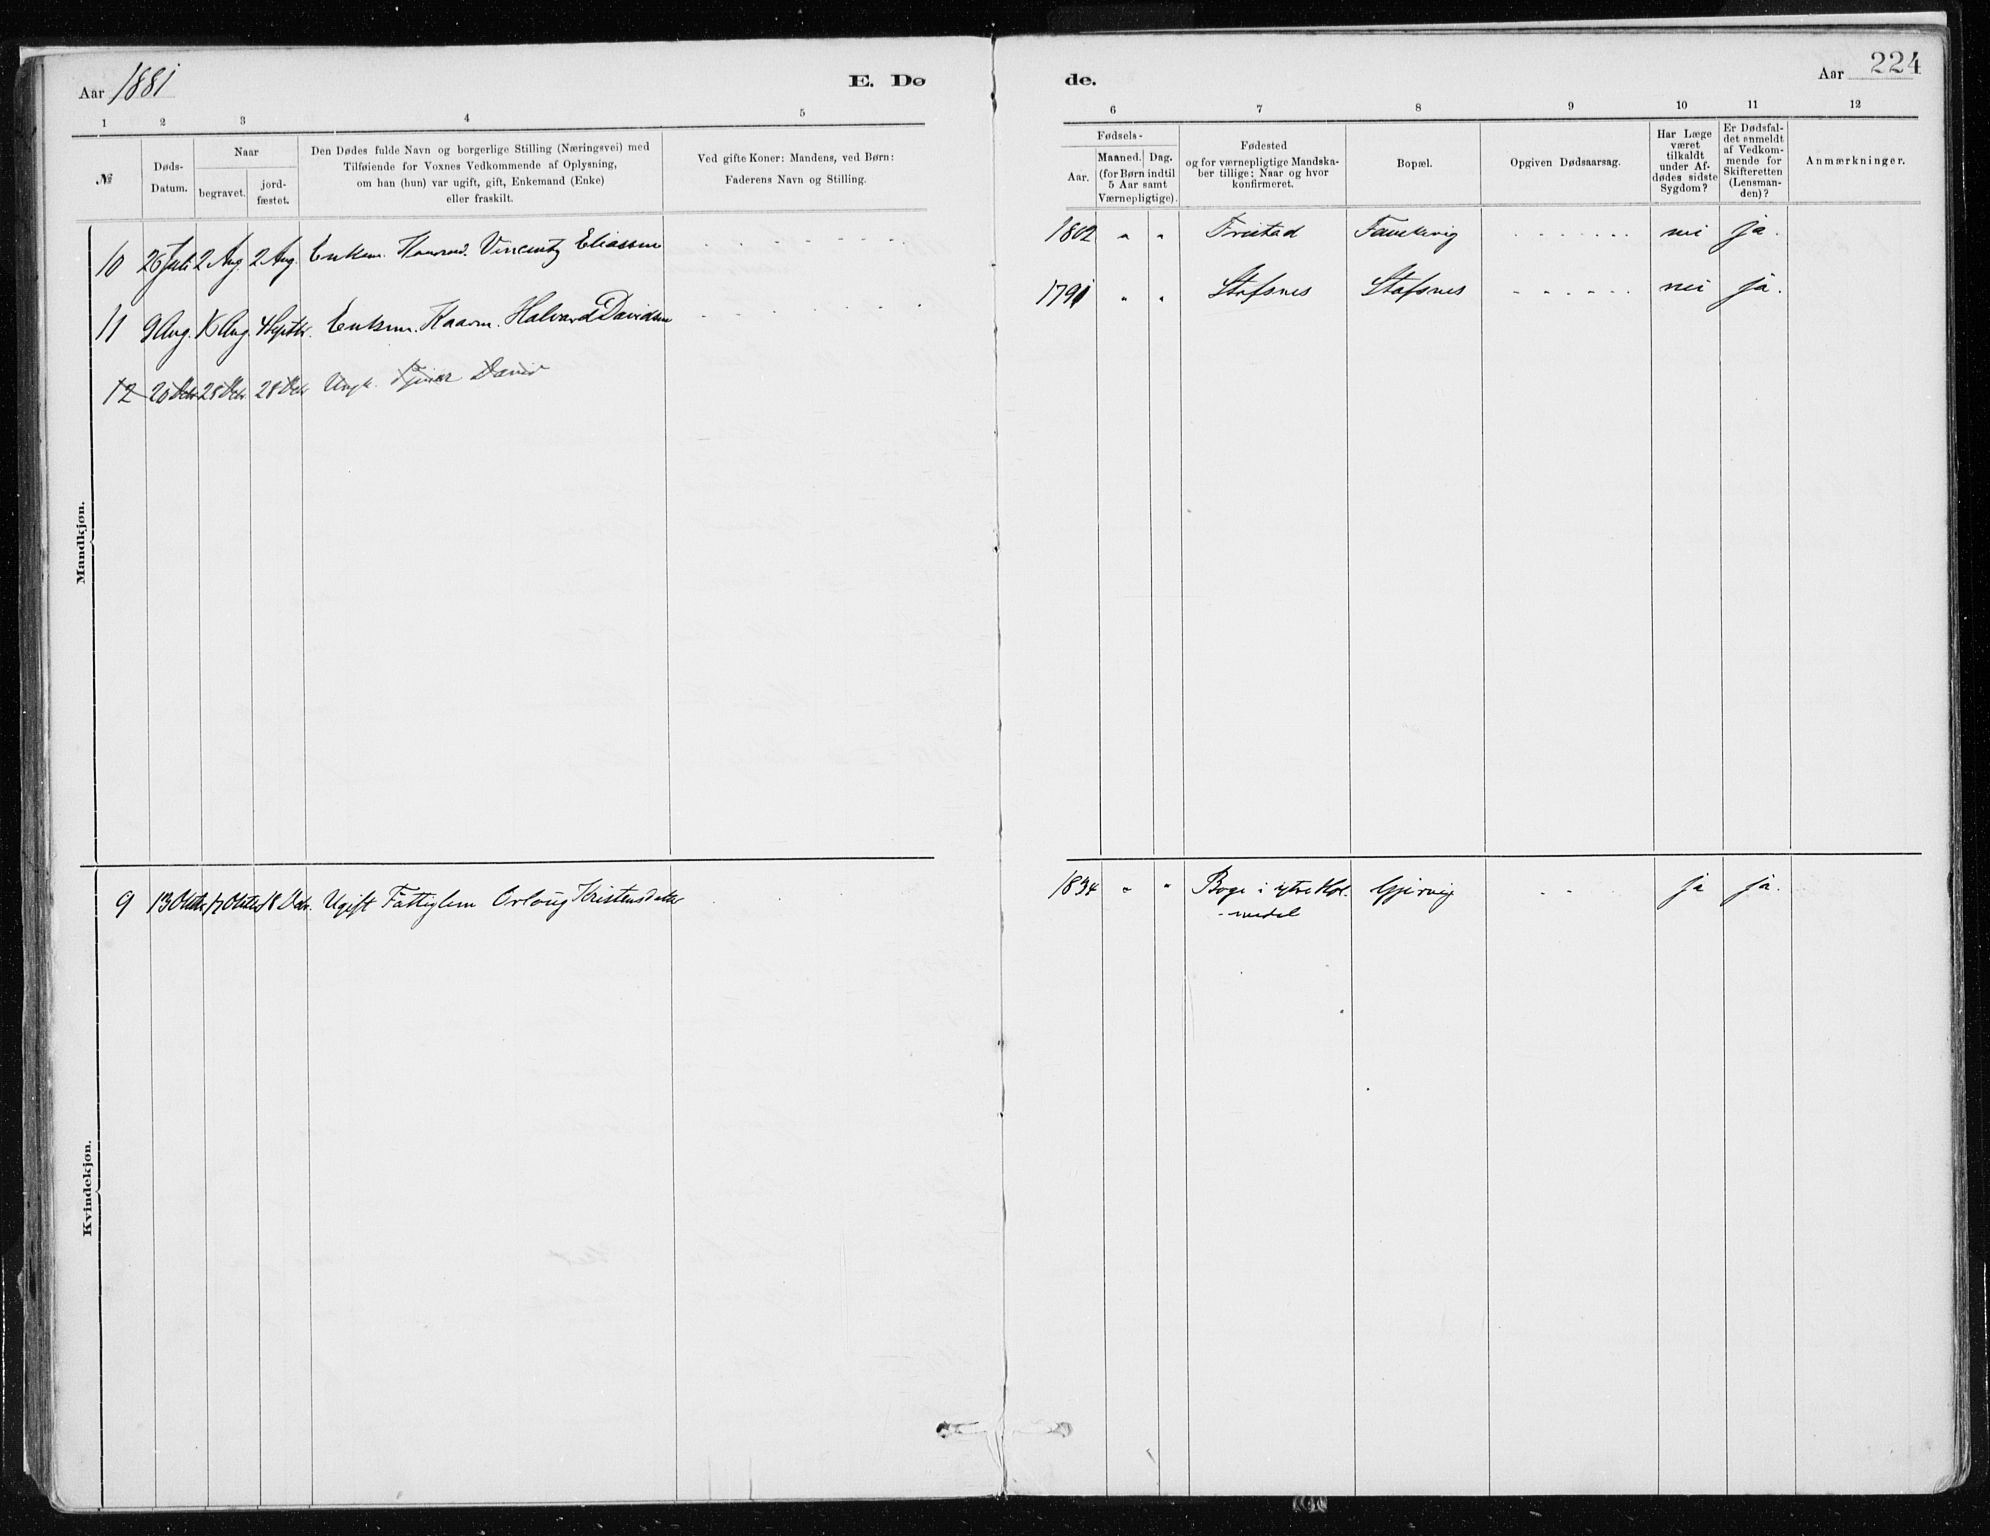 Aar 1881
E. Dø
de.
Aar 224
1 2 3 4 5
6 7 8 9 10 11 12
№
Døds-
Datum.
Naar
begravet.
jord-
fæstet.
Den Dødes fulde Navn og borgerlige Stilling (Næringsvei) med
Tilføiende for Voxnes Vedkommende af Oplysning,
om han (hun) var ugift, gift, Enkemand (Enke)
eller fraskilt.
Ved gifte Koner: Mandens, ved Børn:
Faderens Navn og Stilling.
Fødsels-
Aar.
Maaned. Dag.
(for Børn indtil
5 Aar samt
Værnepligtige).
Fødested
og for værnepligtige Mandska-
ber tillige: Naar og hvor
konfirmeret.
Bopæl.
Opgiven Dødsaarsag.
Har Læge
været
tilkaldt
under Af-
dødes sidste
Sygdom?
Er Dødsfal-
det anmeldt
af Vedkom-
mende for
Skifteretten
(Lensman-
den)?
Anmærkninger.
Mandkjøn.
10 26 Juli 2 Aug 2 Aug. Vincentz Eliassen 1802 " " nei ja.
11 9 Aug. Aug. 4 Septbr. Halvard Davidsen 1791 " " Stafsnes Stafsnes nei ja.
12 20 Dcbr 28 Dcbr 28 Dcbr Ungk. David
Kvindekjøn.
9 13 Octbr 17 Octbr 18 Dcbr. Ugift Fattiglem Orloug Kristensdatter 1834 " " Boge i ytre Hol- Gjervig ja ja.
- medal